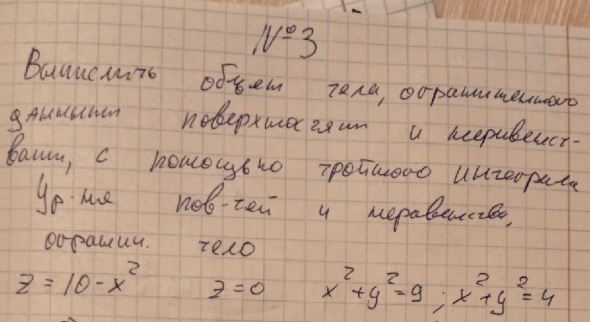 №3
Вычислить объем тела, ограниченного
данными поверхностями и неравенст-
вами, с помощью тройного интеграла
Ур-ия пов-тей и неравенства,
огранич. тело
z = 10 - x² z = 0 x² + y² = 9; x² + y² = 4